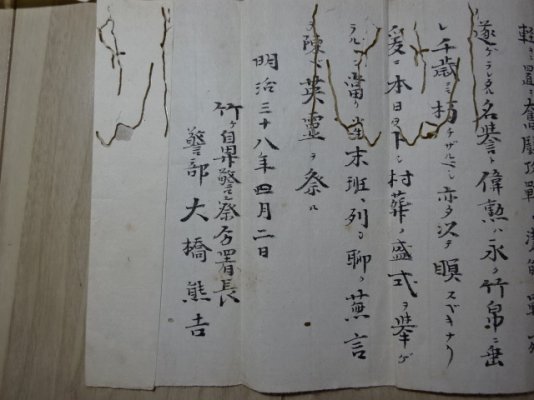 遂ゲラレタル名誉ト偉勲ハ永ク竹帛ニ垂
レ千歳ニ朽チザルベシ亦タ以テ瞑スベキナリ
爰ニ本日ヲトシ村葬ノ盛式ヲ挙ゲ
ラル 当リ 末班ニ列シ聊カ蕪言
ヲ陳ベ英霊ヲ祭ル
明治三十八年四月二日
竹 自 警察分署長
警部大橋熊吉